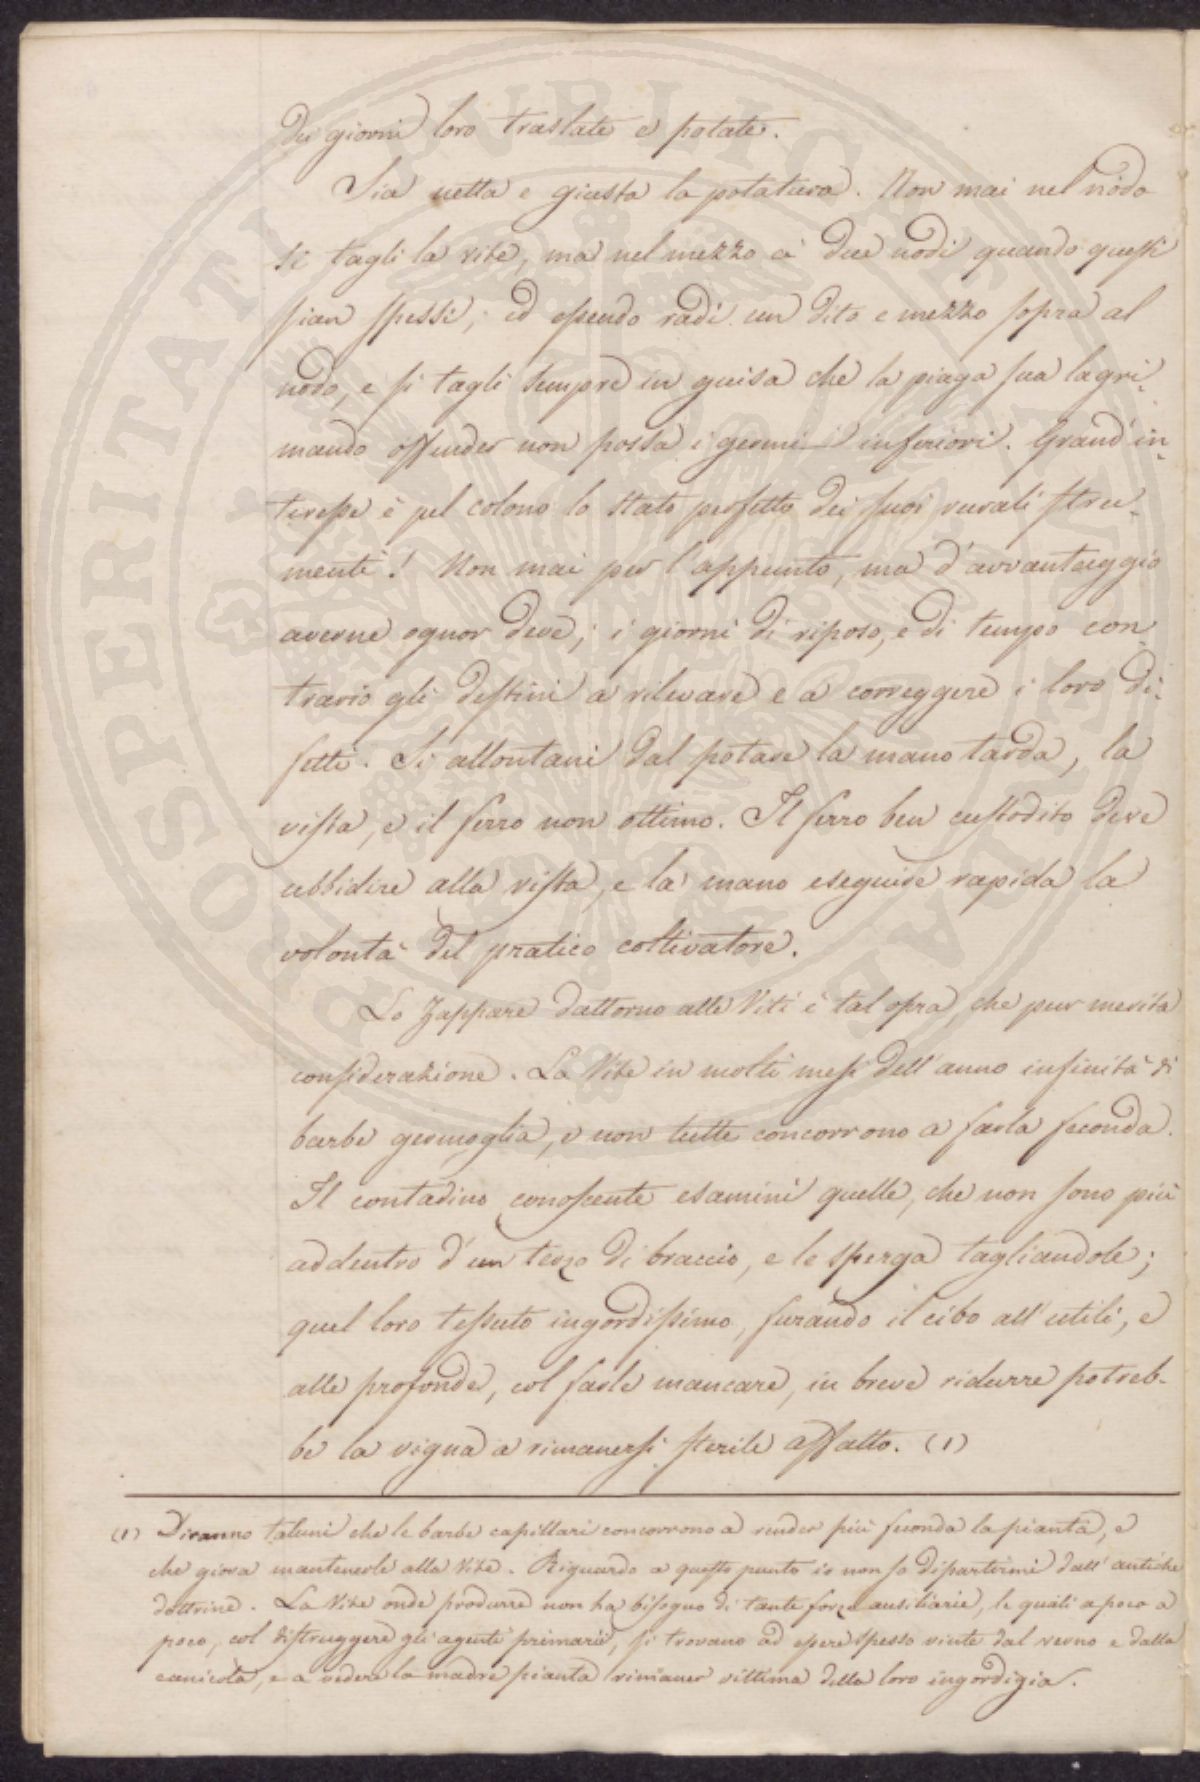 dei giorni loro traslate e potate.
Sia netta e giusta la potatura. Non mai nel nodo
si tagli la vite, ma nel mezzo a' due nodi quando questi
sian spessi; ed essendo radi un dito e mezzo sopra al
nodo, e si tagli sempre in guisa che la piaga sua lagri-
mando offender non possa i germi inferiori. Grand'in-
teresse è pel colono lo stato perfetto dei suoi rurali stru-
menti! Non mai per l'appunto, ma d'avvantaggio
averne ognor deve; i giorni di riposo, e di tempo con-
trario gli destini a rilevare e a correggere i loro di-
fetti. Si allontani dal potare la mano tarda, la
vista, e il ferro non ottimo. Il ferro ben custodito deve
ubbidire alla vista, e la mano eseguire rapida la
volontà del pratico coltivatore.
Lo Zappare dattorno alle Viti è tal opra, che pur merita
considerazione. La Vite in molti mesi dell'anno infinità di
barbe germoglia, e non tutte concorrono a farla feconda.
Il contadino conoscente esamini quelle, che non sono più
addentro d'un terzo di braccio, e le sperga tagliandole;
quel loro tessuto ingordissimo, furando il cibo all'utili, e
alle profonde, col farle mancare, in breve ridurre potreb-
be la vigna a rimanersi sterile affatto. (1)
(1) Diranno taluni che le barbe capillari concorrono a render più feconda la pianta, e
che giova mantenerle alla Vite. Riguardo a questo punto io non so dipartirmi dall'antiche
dottrine. La Vite onde produrre non ha bisogno di tante forze ausiliarie, le quali a poco a
poco, col distruggere gli agenti primarii, si trovano ad essere spesso vinte dal verno e dalla
canicola, e a vedere la madre pianta rimaner vittima della loro ingordigia.
PROSPERITATI PUBLICAE AUGENDAE